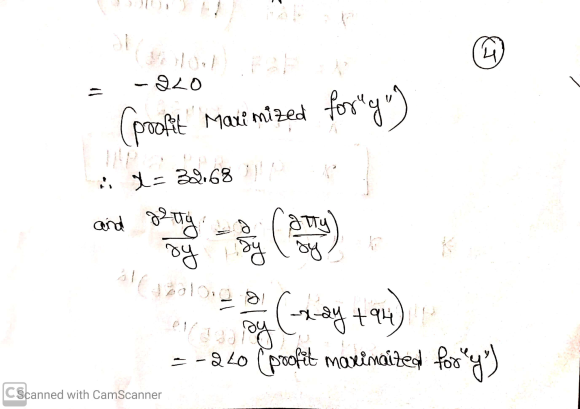 4
= -2<0
(profit Maximized for "y")
∴ x = 32.68
and ∂²πy/∂y = ∂/∂y (∂πy/∂y)
= ∂/∂y (-x-2y+94)
= -2<0 (profit maximaized for "y")
CS Scanned with CamScanner